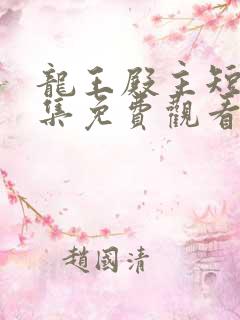 龍王殿主短
集免費觀看
趙國清